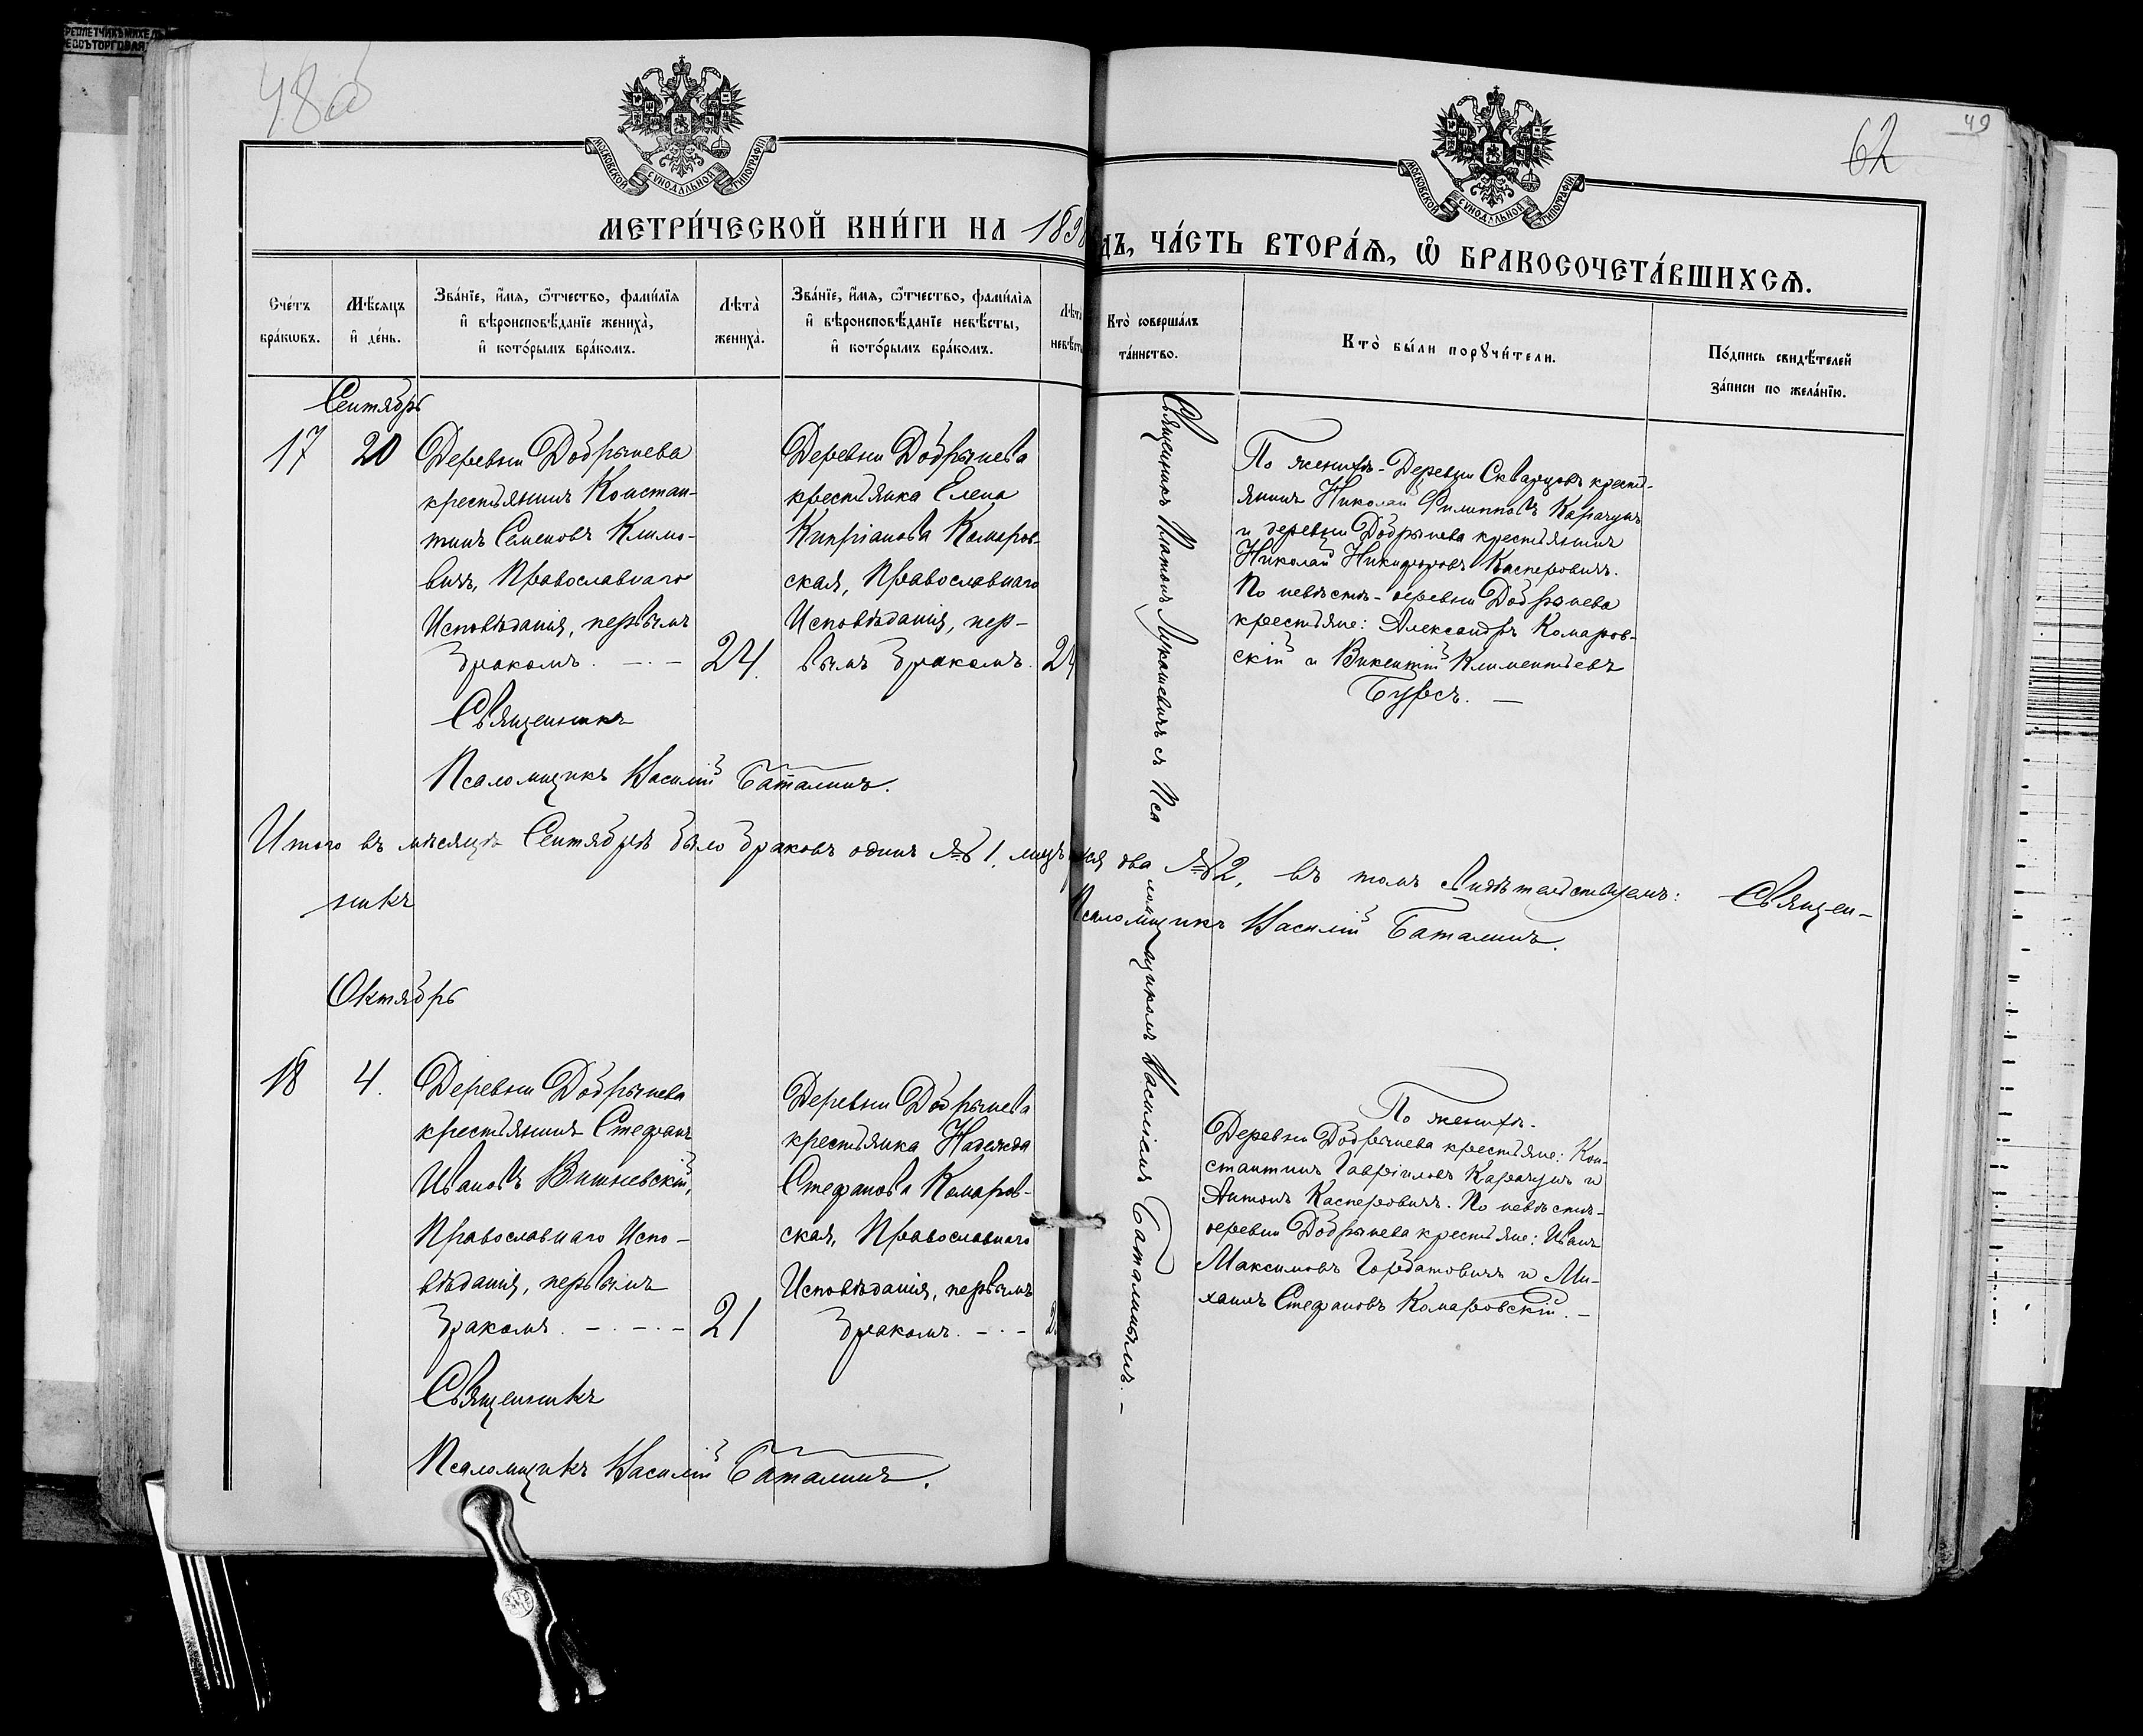 РЕПЛЕТЧИКЪ МИХЕЛЬ
48об
62
49
МОСКОВСКОЙ СѴНОДАЛЬНОЙ ТИПОГРАФІИ
МОСКОВСКОЙ СѴНОДАЛЬНОЙ ТИПОГРАФІИ
МЕТРИ́ЧЕСКОЙ КНИ́ГИ НА 189
ДЪ, ЧА́СТЬ ВТОРА́Ѧ, Ѽ БРАКОСОЧЕТА́ВШИХСѦ.
Сче́тъ
бра́кѡвъ.
Мѣ́сяцъ
и҆ де́нь.
Зва́нїе, и҆́мѧ, ѻ҆́тчество, фами́лїѧ
и҆ вѣроисповѣ́данїе жениха̀,
и҆ кото́рымъ бра́комъ.
Лѣта̀
жениха̀.
Зва́нїе, и҆́мѧ, ѻ҆́тчество, фами́лїѧ
и҆ вѣроисповѣ́данїе невѣ́сты,
и҆ кото́рымъ бра́комъ.
Лѣта
невѣст
Кто̀ соверша́лъ
та́инство.
Кто̀ бы́ли порꙋчи́тели.
По́дпись свидѣ́телей
за́писи по жела́нїю.
Сентябрь
17
20
Деревни Добрынева
крестьянинъ Констан-
тинъ Семеновъ Климо-
вичъ, Православнаго
Исповѣданія, первымъ
бракомъ. - . -
24.
Деревни Добрынева
крестьянка Елена
Кипріанова Комаров-
ская, Православнаго
Исповѣданія, пер-
вымъ бракомъ.
24
Священникъ Платонъ Лукашевичъ съ Псаломщикомъ Василіемъ Баталинымъ. -
По женихѣ - Деревни Скварцовъ кресть-
янинъ Николай Филипповъ Карачунъ
и деревни Добрынева крестьянинъ
Николай Никифоровъ Касперовичъ.
По невѣстѣ - деревни Добрынева
крестьяне: Александръ Комаров-
скій и Викентій Климентьевъ
Бурсъ. -
Священникъ
Псаломщикъ Василій Баталинъ.
Итого въ мѣсяцѣ Сентябрѣ было браковъ одинъ №1, лицъ два №2, въ томъ свидѣтельствуемъ: Священ-
никъ
Псаломщикъ Василій Баталинъ.
Октябрь
18
4.
Деревни Добрынева
крестьянинъ Стефанъ
Ивановъ Вишневскій,
Православнаго Испо-
вѣданія, первымъ
бракомъ. - . - . -
21
Деревни Добрынева
крестьянка Надежда
Стефанова Комаров-
ская, Православнаго
Исповѣданія, первымъ
бракомъ. - . -
2
По женихѣ -
Деревни Добрынева крестьяне: Кон-
стантинъ Гавріиловъ Карачунъ и
Антонъ Касперовичъ. По невѣстѣ -
деревни Добрынева крестьяне: Иванъ
Максимовъ Горбатовичъ и Ми-
хаилъ Стефановъ Комаровскій. -
Священникъ
Псаломщикъ Василій Баталинъ.